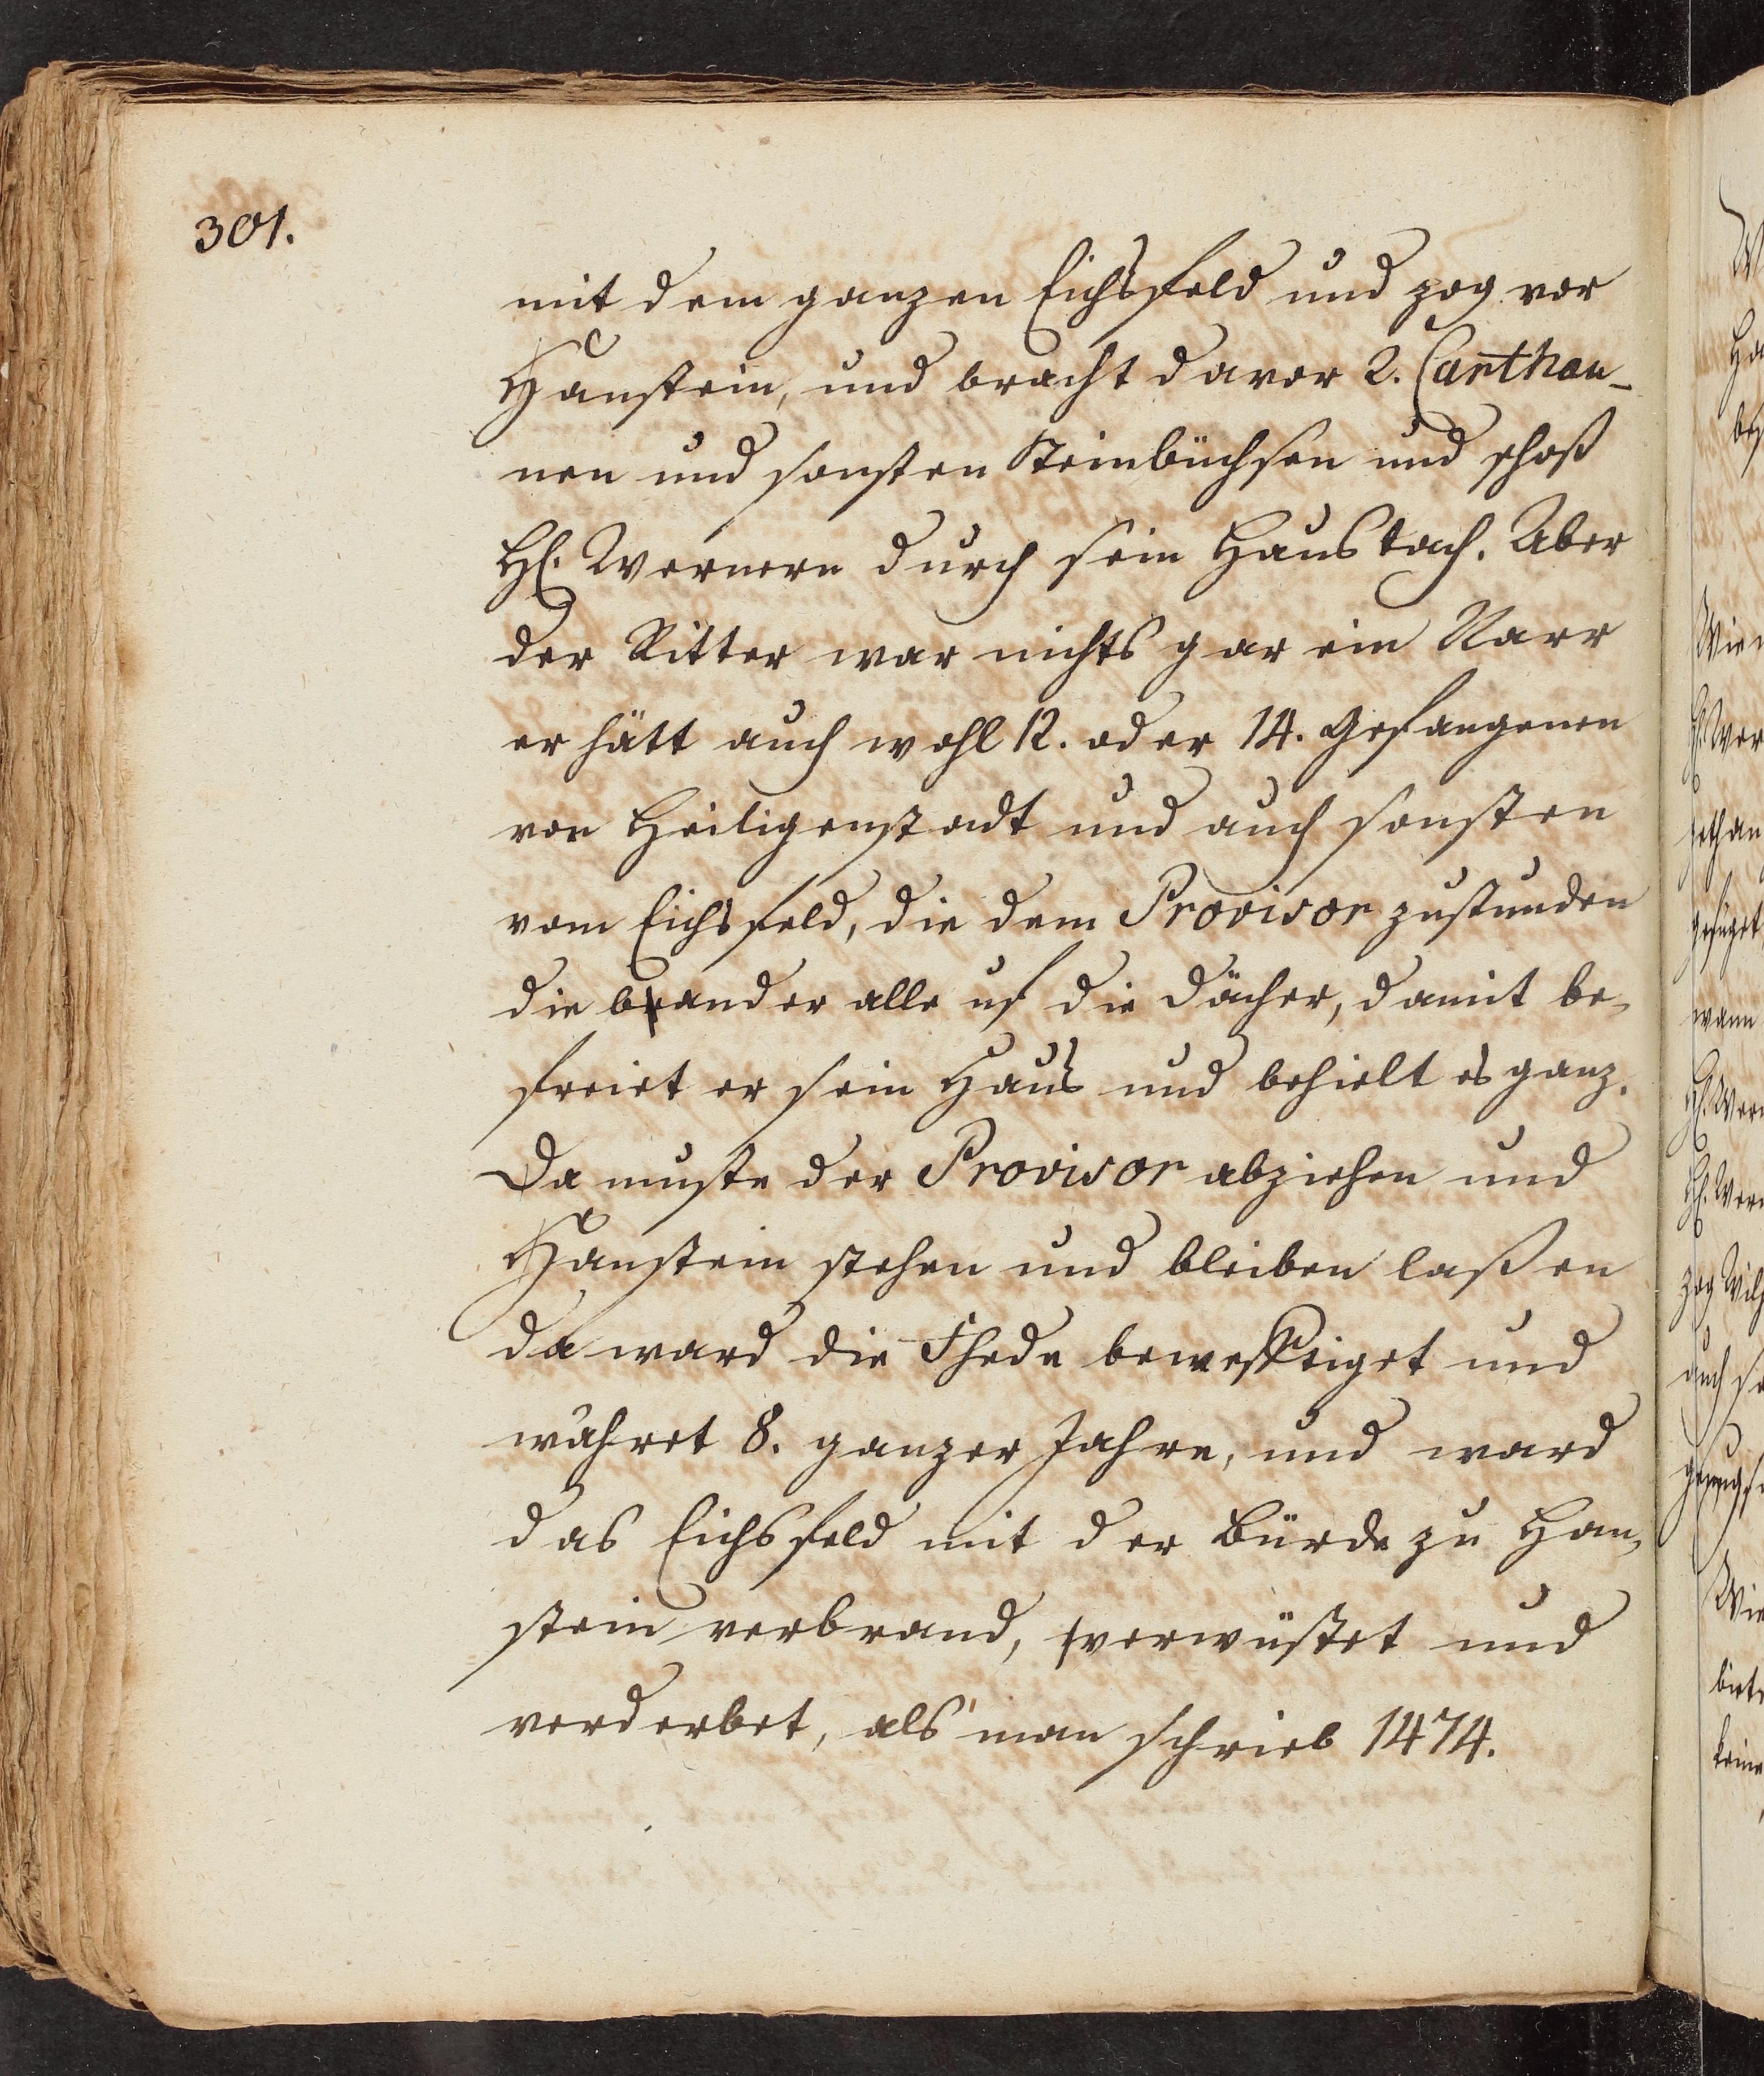 301.
mit dem ganzen Eichsfeld und zog vor
Hanstein, und bracht davor 2. Carthau-
nen und sonsten Steinbüchsen und schoß
H. Wernern durch sein Haustach. Aber
der Ritter war nichts gar ein Narr
er hätt auch wohl 12. oder 14. Gefangenen
von Heiligenstadt und auch sonsten
vom Eichsfeld, die dem Provisor zustunden
die bander alle uf die Dächer, damit be-
freiet er sein Haus und behielt es ganz.
Da muste der Provisor abziehen und
Hanstein stehen und bleiben laßen
da ward die Fhede
und
währet 8. ganzer Jahre, und ward
das Eichsfeld mit der Bürde zu Han-
stein verbrand, verwüstet und
verderbet, als man schrieb 1474.